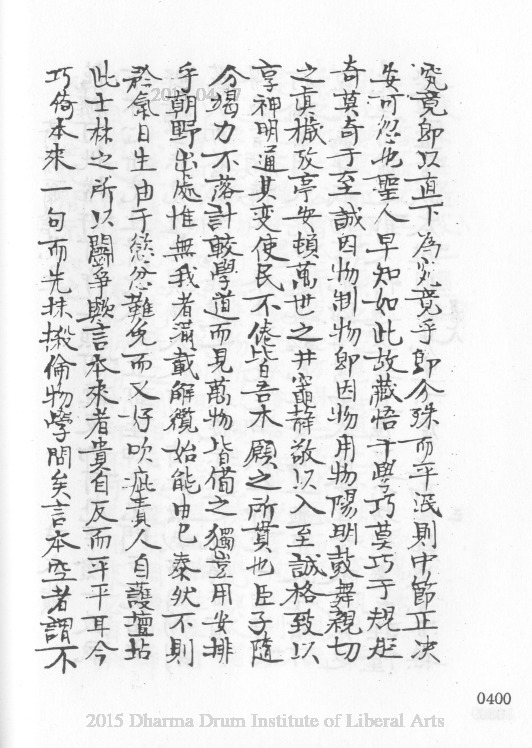 究竟卽以直下為究竟乎卽分殊而平泯則中節正决
安可忽也聖人早知如此故藏悟于學巧莫巧于規矩
奇莫奇于至誠因物制物卽因物用物陽明鼓舞親切
之真機攷亭安頓萬世之井竈靜敬以入至誠格致以
享神明通其變使民不倦皆吾木願之所貫也臣子隨
分竭力不落計較學道而見萬物皆備之獨豈用安排
乎朝野出處惟無我者滿載解纜始能由己泰然不則
矜氣日生由于慾忿難免而又好吹疵責人自護壇坫
此士林之所以鬪爭歟言本來者貴自反而平平耳今
巧倚本來一句而先抹摋倫物學問矣言本空者謂不
0400
2015 Dharma Drum Institute of Liberal Arts